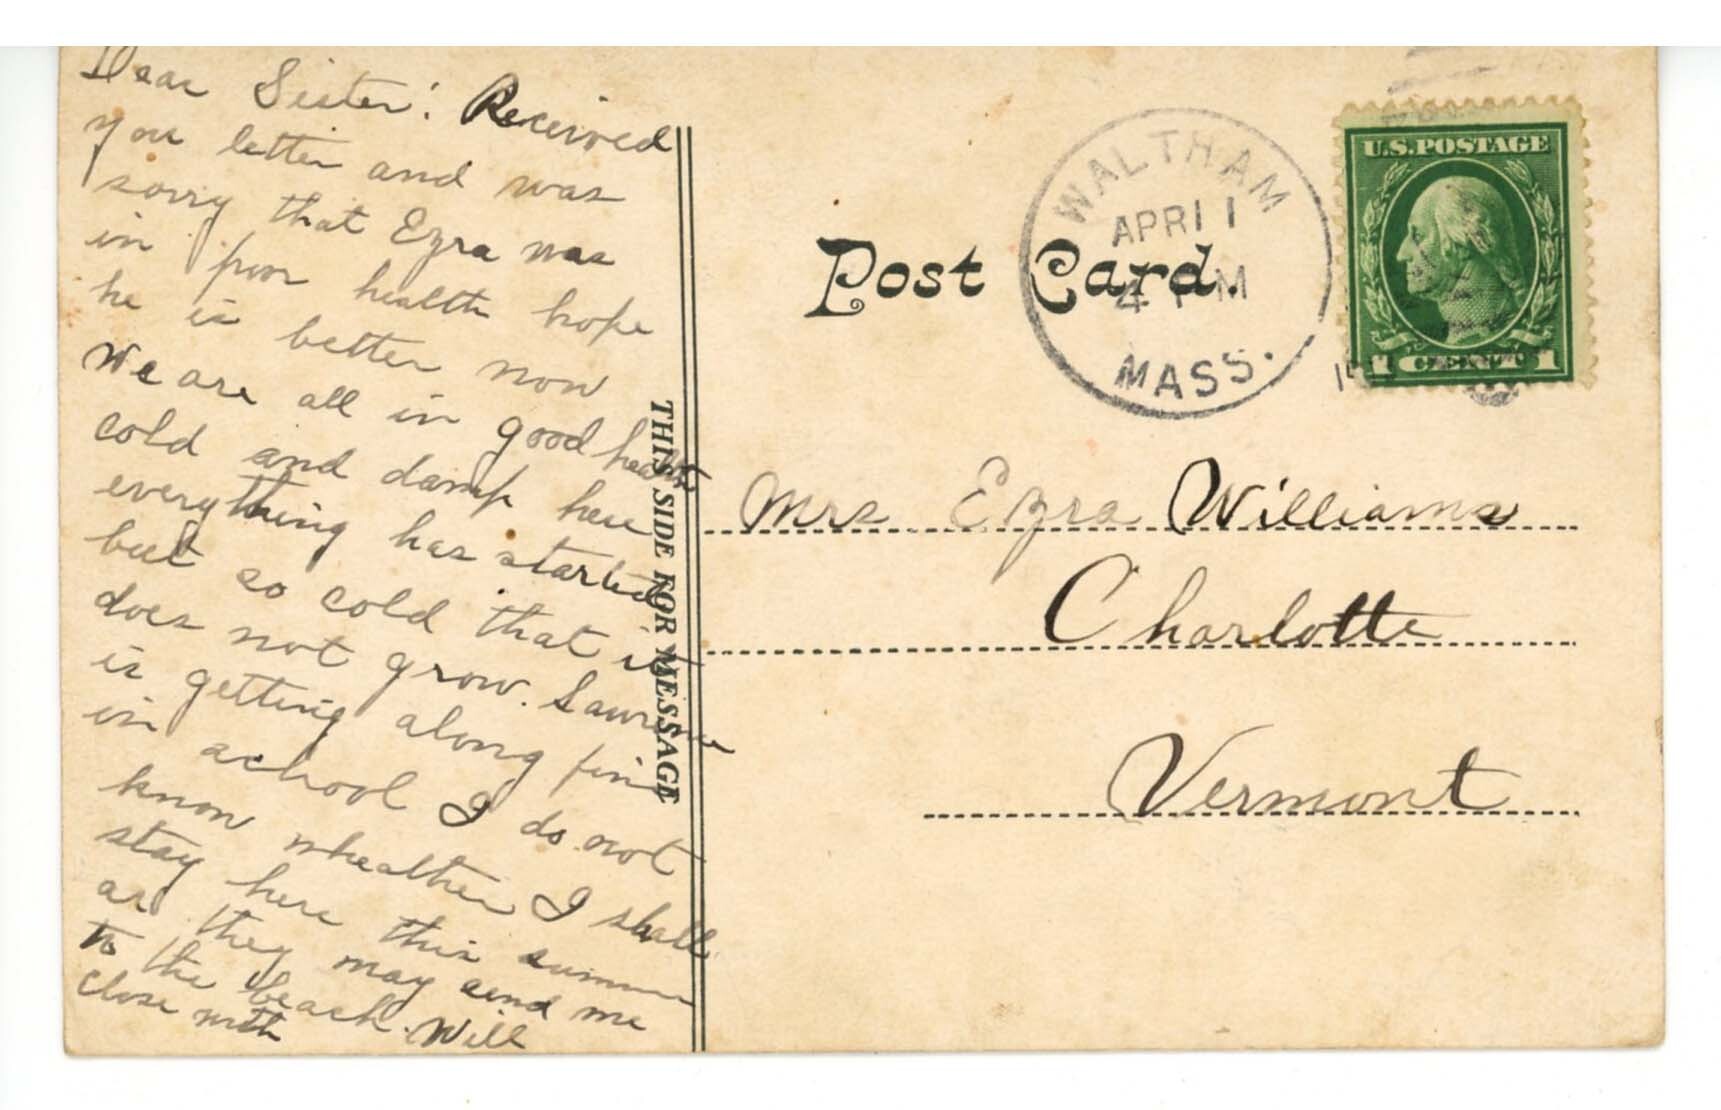 Dear Sister: Received
you letter and was
sorry that Ezra was
in poor health hope
he is better now
We are all in good health
cold and damp here
everything has started
but so cold that it
does not grow.
is getting along fine
in school I do not
know wheather I shall
stay here this summer
as they may send me
to the beach.
close with Will
THIS SIDE FOR MESSAGE
Post Card.
WALTHAM
APR 11
4 PM
MASS.
U.S. POSTAGE
1 CENT 1
Mrs Ezra Williams
Charlotte
Vermont